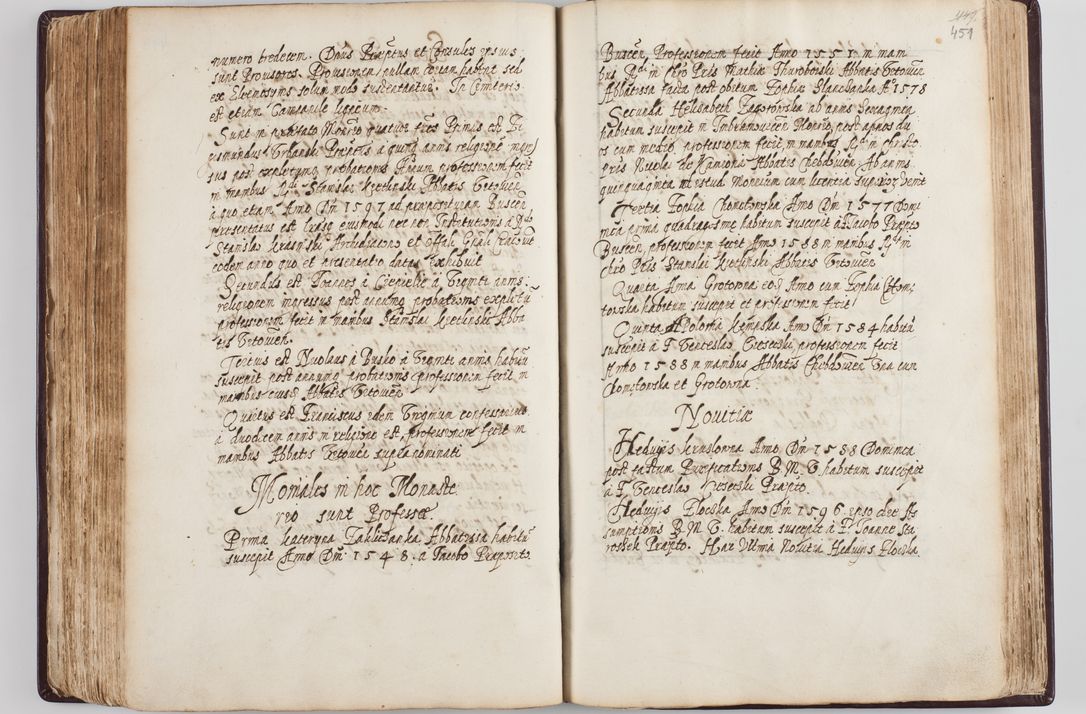 numero tredecem. Dnus Praeptus et Consules ipsius
sunt Prouisores. Prouisionem nullam certam habent sed
ex Elemosynis solum modo sustentantur. In Cimiterio
est etiam Campanile ligneum.
Sunt in praefato Monrio quatuor fres Primus est
gismundus Prapts a quinq annis religione ingres
sus post expletum probationis Annum professionem fecit
in manibus Rdi Stanislai Kietlinski Abbatis Vitouien
a quo etiam Anno Dni 1597 ad praeposituram Buscen
praesentatus est nec non Institutionis a Rdo
Stanislao Krasinski Archidiacono et Offali Gnali
eodem anno quo et praesentatio datas exhibuit
Secundus est Joannes à à Viginti annis
religionem ingressus post annum probationis expletu
professionem fecit in manibus Stanislai Kietlinski Abba
tis Vitouien.
Tertius est Nicolaus à Busko à Viginti annis habitu
suscepit post annum probationis professionem fecit in
manibus eiusd Abbatis Vitouien
Quartus est Franciscus idem Virginum confessarius
à duodecem annis in religione est, professionem fecit in
manibus Abbatis Vitouien supranominati
Moniales in hoc Monaste
rio sunt Professae
Prima Kateryna Abbatissa habitu
suscepit Anno Dni 1548. a Jacobo Praeposito
451
Buscen, Professionem fecit Anno 1551 in mani
bus Rdi in Chro Pris Mathiae Abbatis Vitouien
Abbatissa facta post obitum Sophiae A° 1578
Secunda Helisabeth ab annis sexaginta
habitum suscepit in Monrio, post annos du
os cum medio, professionem fecit in manibus Rdi in Christo
pris Nicolai de Abbatis Chebdouien, Ab annis
quinquaginta in istud Monrium cum licentia venit
Tertia Sophia Chomętowska Anno Dni 1577 Domi
nica prima quadragesimae habitum suscepit à Jacobo Praepto
Buscen, professionem fecit Anno 1588 in manibus Rdi in
Chro Pris Stanislai Kietlinski Abbatis Vitouien
Quarta Anna Grotowna eod Anno cum Sophia Chome
towska habitum suscepit et professionem fecit
Quinta Apolonia Kempska Anno Dni 1584 habitu
suscepit à P. Venceslao professionem fecit
Anno 1588 in manibus Abbatis Chebdouien Vna cum
Chomętowska et Grotowna.
Nouitiae
Heduigis Anno Dni 1588 Dominica
post festum Purificationis B. M. V. habitum suscepit
à P. Venceslao Praepto.
Heduigis Plocska Anno Dni 1596 ipso die As
sumptionis B. M. V. habitum suscepit à P. Joanne
Praepto. Haec Vltima Nouitia Heduigis Plocska